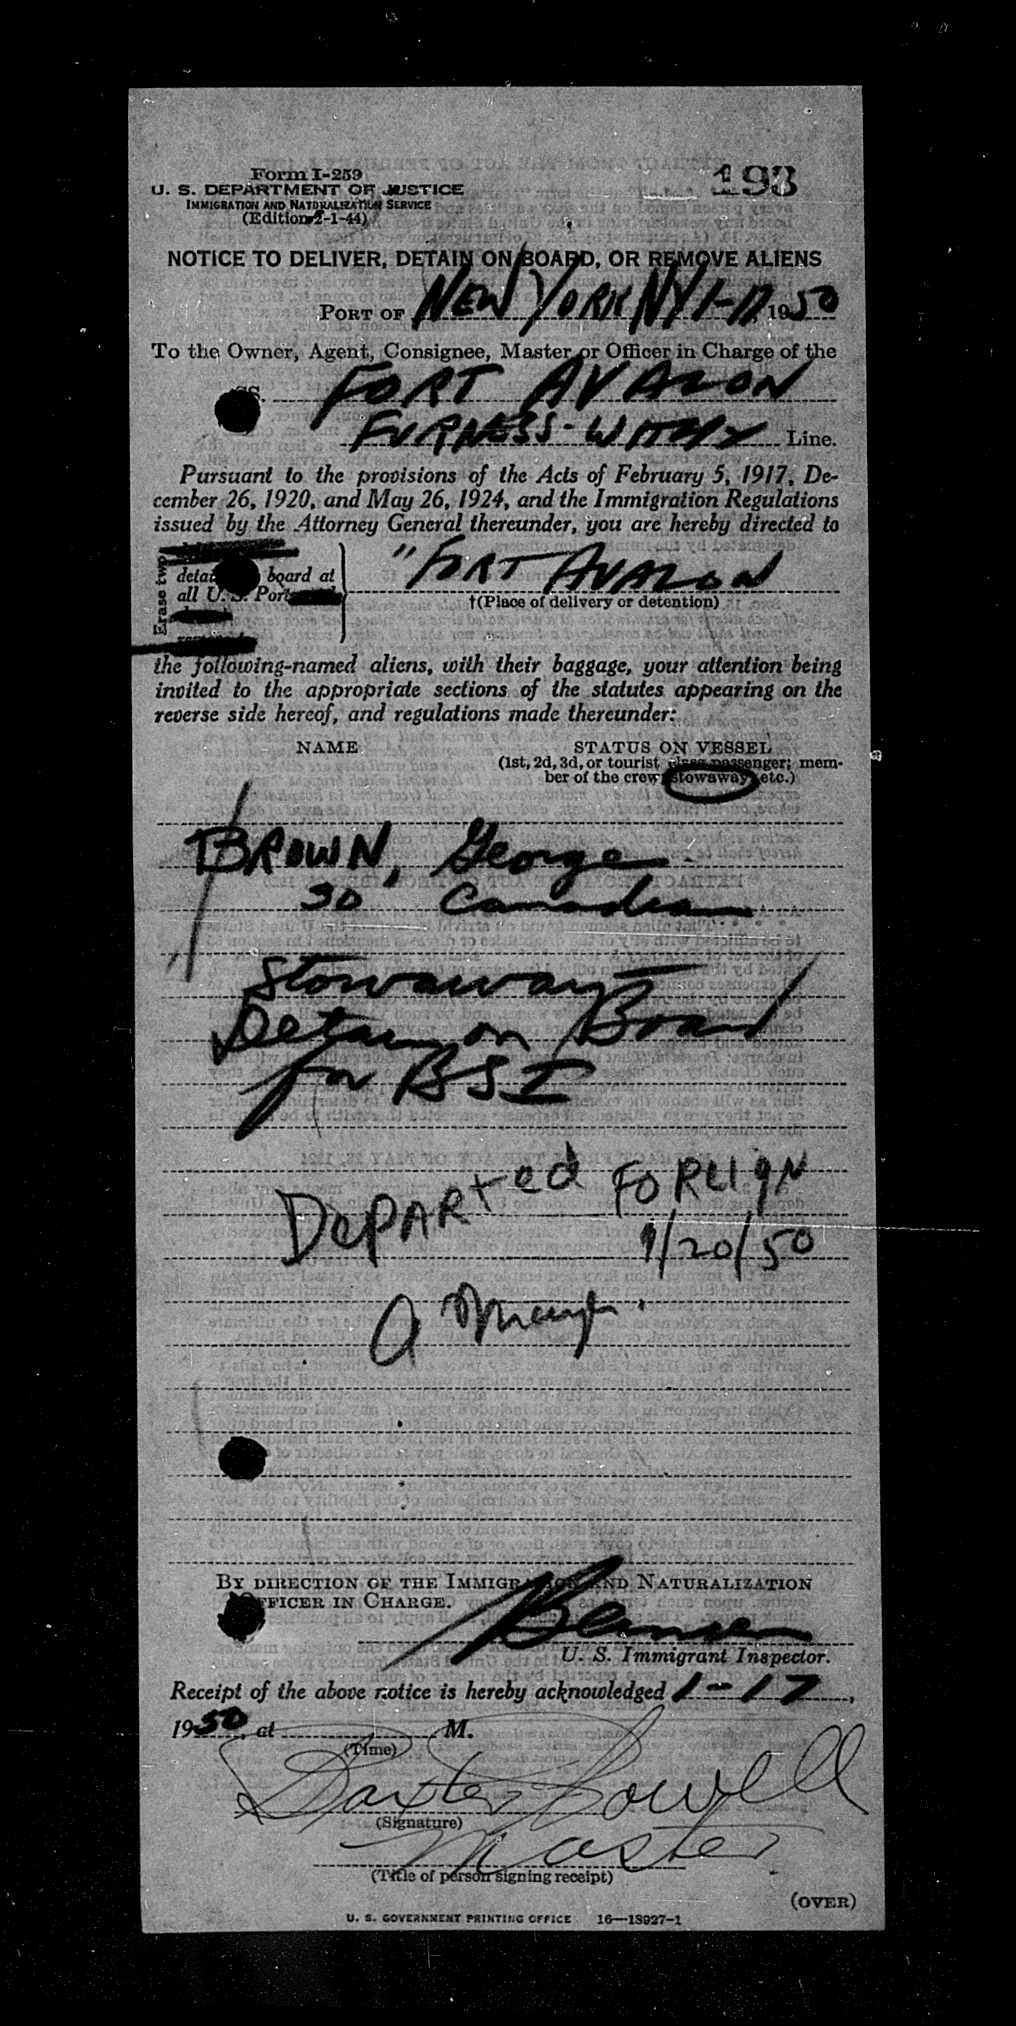 Form I-259
193
U. S. DEPARTMENT OF JUSTICE
IMMIGRATION AND NATURALIZATION SERVICE
(Edition 2-1-44)
NOTICE TO DELIVER, DETAIN ON BOARD, OR REMOVE ALIENS
PORT OF NEW YORK NY 1-17 1950
To the Owner, Agent, Consignee, Master or Officer in Charge of the
SS. FORT AVALON
FURNESS-WITHY Line.
Pursuant to the provisions of the Acts of February 5, 1917, De-
cember 26, 1920, and May 26, 1924, and the Immigration Regulations
issued by the Attorney General thereunder, you are hereby directed to
Erase two
detain board at
all U. S. Ports
"FORT AVALON
†(Place of delivery or detention)
the following-named aliens, with their baggage, your attention being
invited to the appropriate sections of the statutes appearing on the
reverse side hereof, and regulations made thereunder:
NAME STATUS ON VESSEL
(1st, 2d, 3d, or tourist class passenger; mem-
ber of the crew, stowaway, etc.)
BROWN, George
30 Canadian
Stowaway
Detain on Board
for BSI
DepARted FOREIGN
1/20/50
BY DIRECTION OF THE IMMIGRATION AND NATURALIZATION
OFFICER IN CHARGE.
U. S. Immigrant Inspector.
Receipt of the above notice is hereby acknowledged 1-17,
1950, at M.
(Time)
Baxter Powell
(Signature)
Master
(Title of person signing receipt)
(OVER)
U. S. GOVERNMENT PRINTING OFFICE 16—13927-1